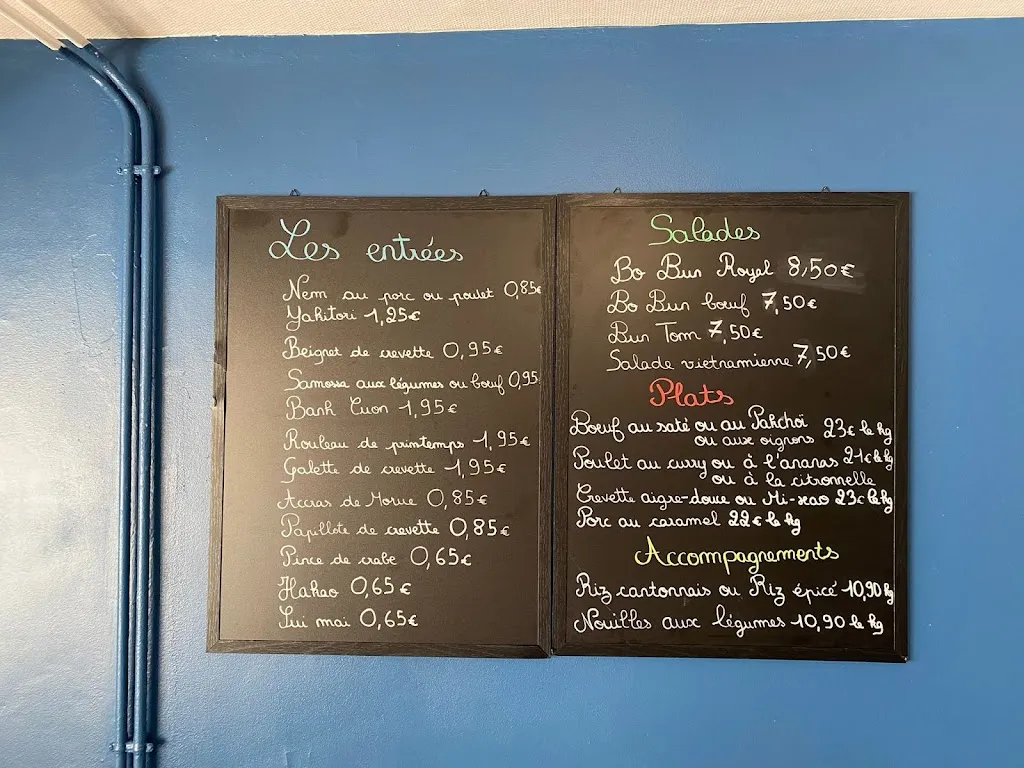 Les entrées
Nem au porc ou poulet 0,85€
Yakitori 1,25€
Beignet de crevette 0,95€
Samossa aux légumes ou bœuf 0,95
Banh Cuon 1,95€
Rouleau de printemps 1,95€
Galette de crevette 1,95€
Accras de Morue 0,85€
Papillote de crevette 0,85€
Pince de crabe 0,65€
Hakao 0,65€
Sui mai 0,65€
Salades
Bo Bun Royal 8,50€
Bo Bun bœuf 7,50€
Bun Tom 7,50€
Salade vietnamienne 7,50€
Plats
Bœuf au saté ou au Pakchoï
ou aux oignons 23€ le kg
Poulet au curry ou à l'ananas 21€ le kg
ou à la citronnelle
Crevette aigre-douce ou Mi-xao 23€ le kg
Porc au caramel 22€ le kg
Accompagnements
Riz cantonnais ou Riz épicé 10,90 kg
Nouilles aux légumes 10,90 le kg